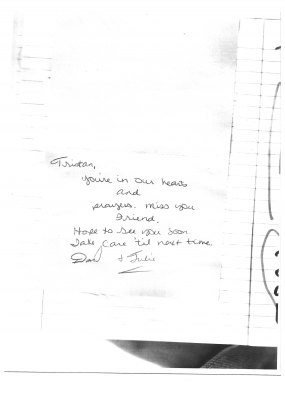 Tristan,
you're in our hearts
and
prayers. Miss you
Friend.
Hope to see you soon.
Take care 'til next time.
Dan & Julie